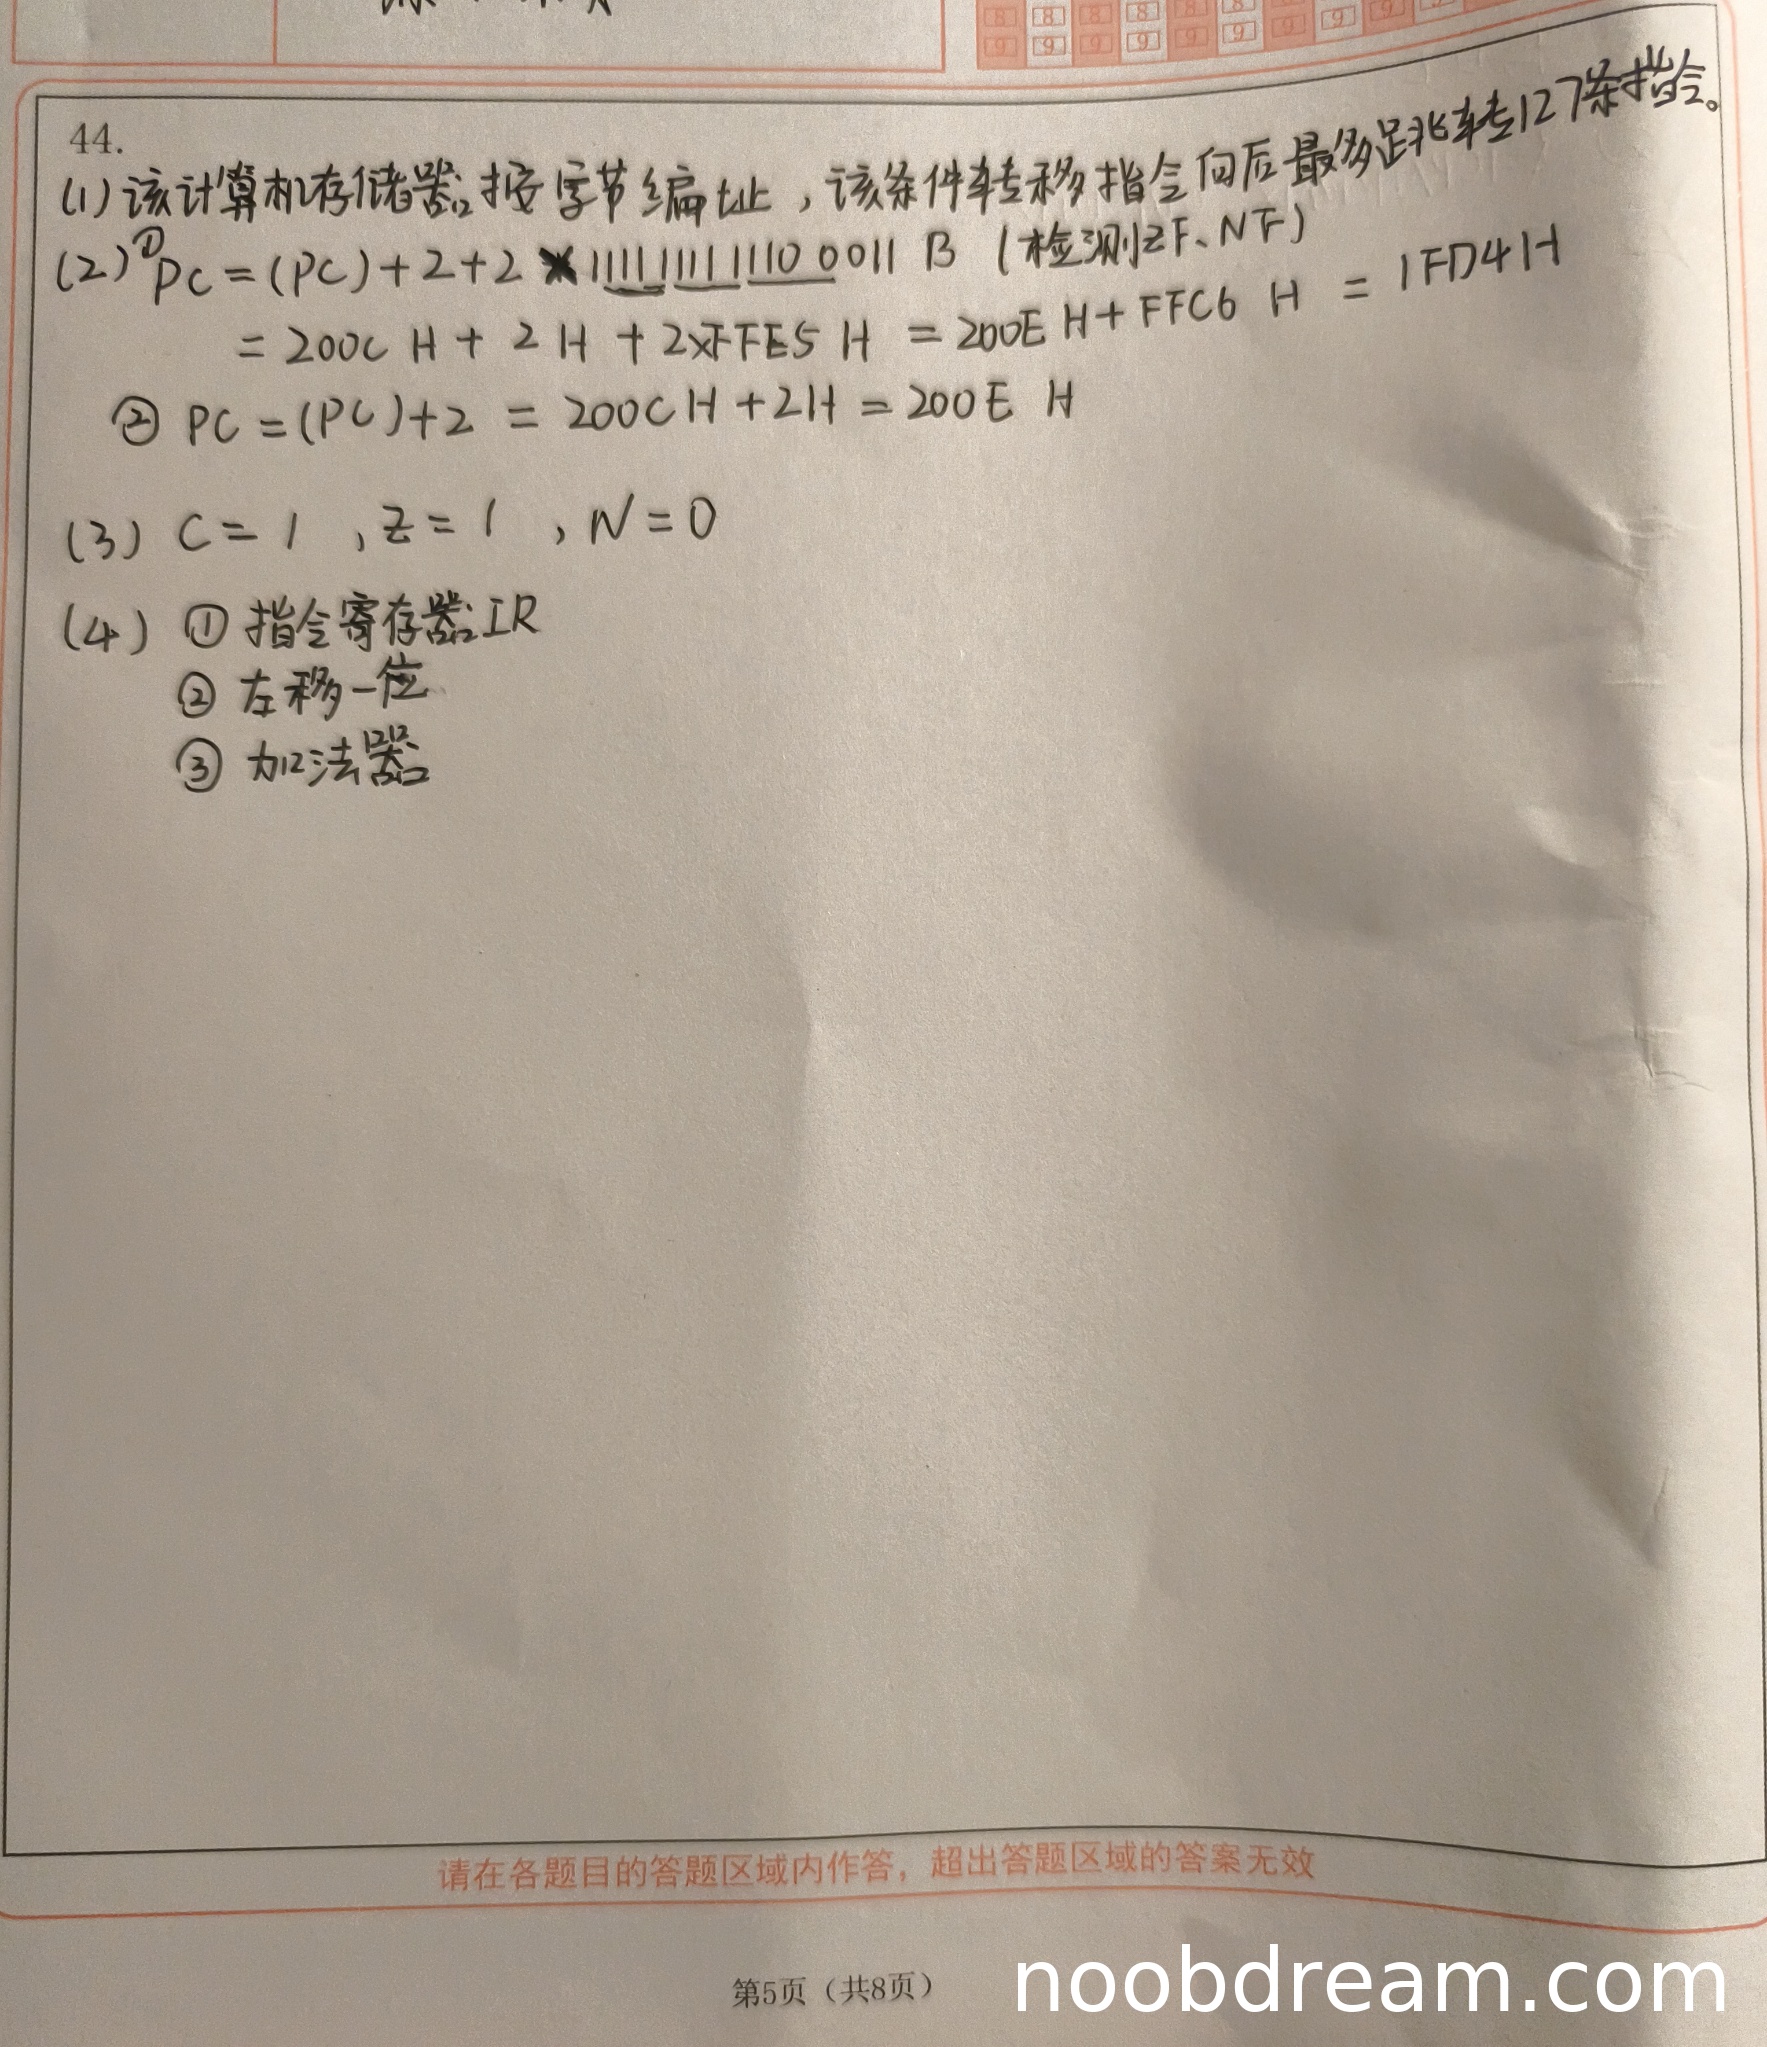 8 8 8 8 8 8 9 9 9 9
9 9 9 9 9 9
44.
(1)该计算机存储器按字节编址,该条件转移指令向后最多跳转127条指令。
(2)①PC=(PC)+2+2 1111111111100011 B (检测ZF、NF)
=200C H + 2 H + 2×FFE5 H = 200E H + FFC6 H = 1FD4H
② PC=(PC)+2 = 200CH+2H=200E H
(3) C=1 ,Z=1 ,N=0
(4) ①指令寄存器IR
②左移一位
③加法器
请在各题目的答题区域内作答,超出答题区域的答案无效
第5页(共8页)
noobdream.com